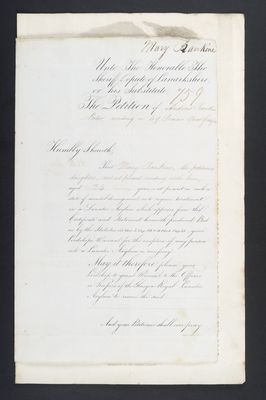 Mary Rankine
Unto The Honorable The
Sheriff Depute of Lanarkshire
or his Substitute 759
The Petition of
residing in 39
Humbly Sheweth,
That Mary Rankine, the petitioners
daughter, and at present residing with him
aged years is at present in such a
state of mental derangement as to require treatment
in a Lunatic Asylum as appears from the
Certificate and Statement herewith produced. But
as by the Statutes
Lordships Warrant for the reception of any person
into a Lunatic Asylum is necessary
May it therefore please your
Lordship to grant Warrant to the Officers
or Keepers of the Glasgow Royal Lunatic
Asylum to receive the said
And your Petitioner shall ever pray